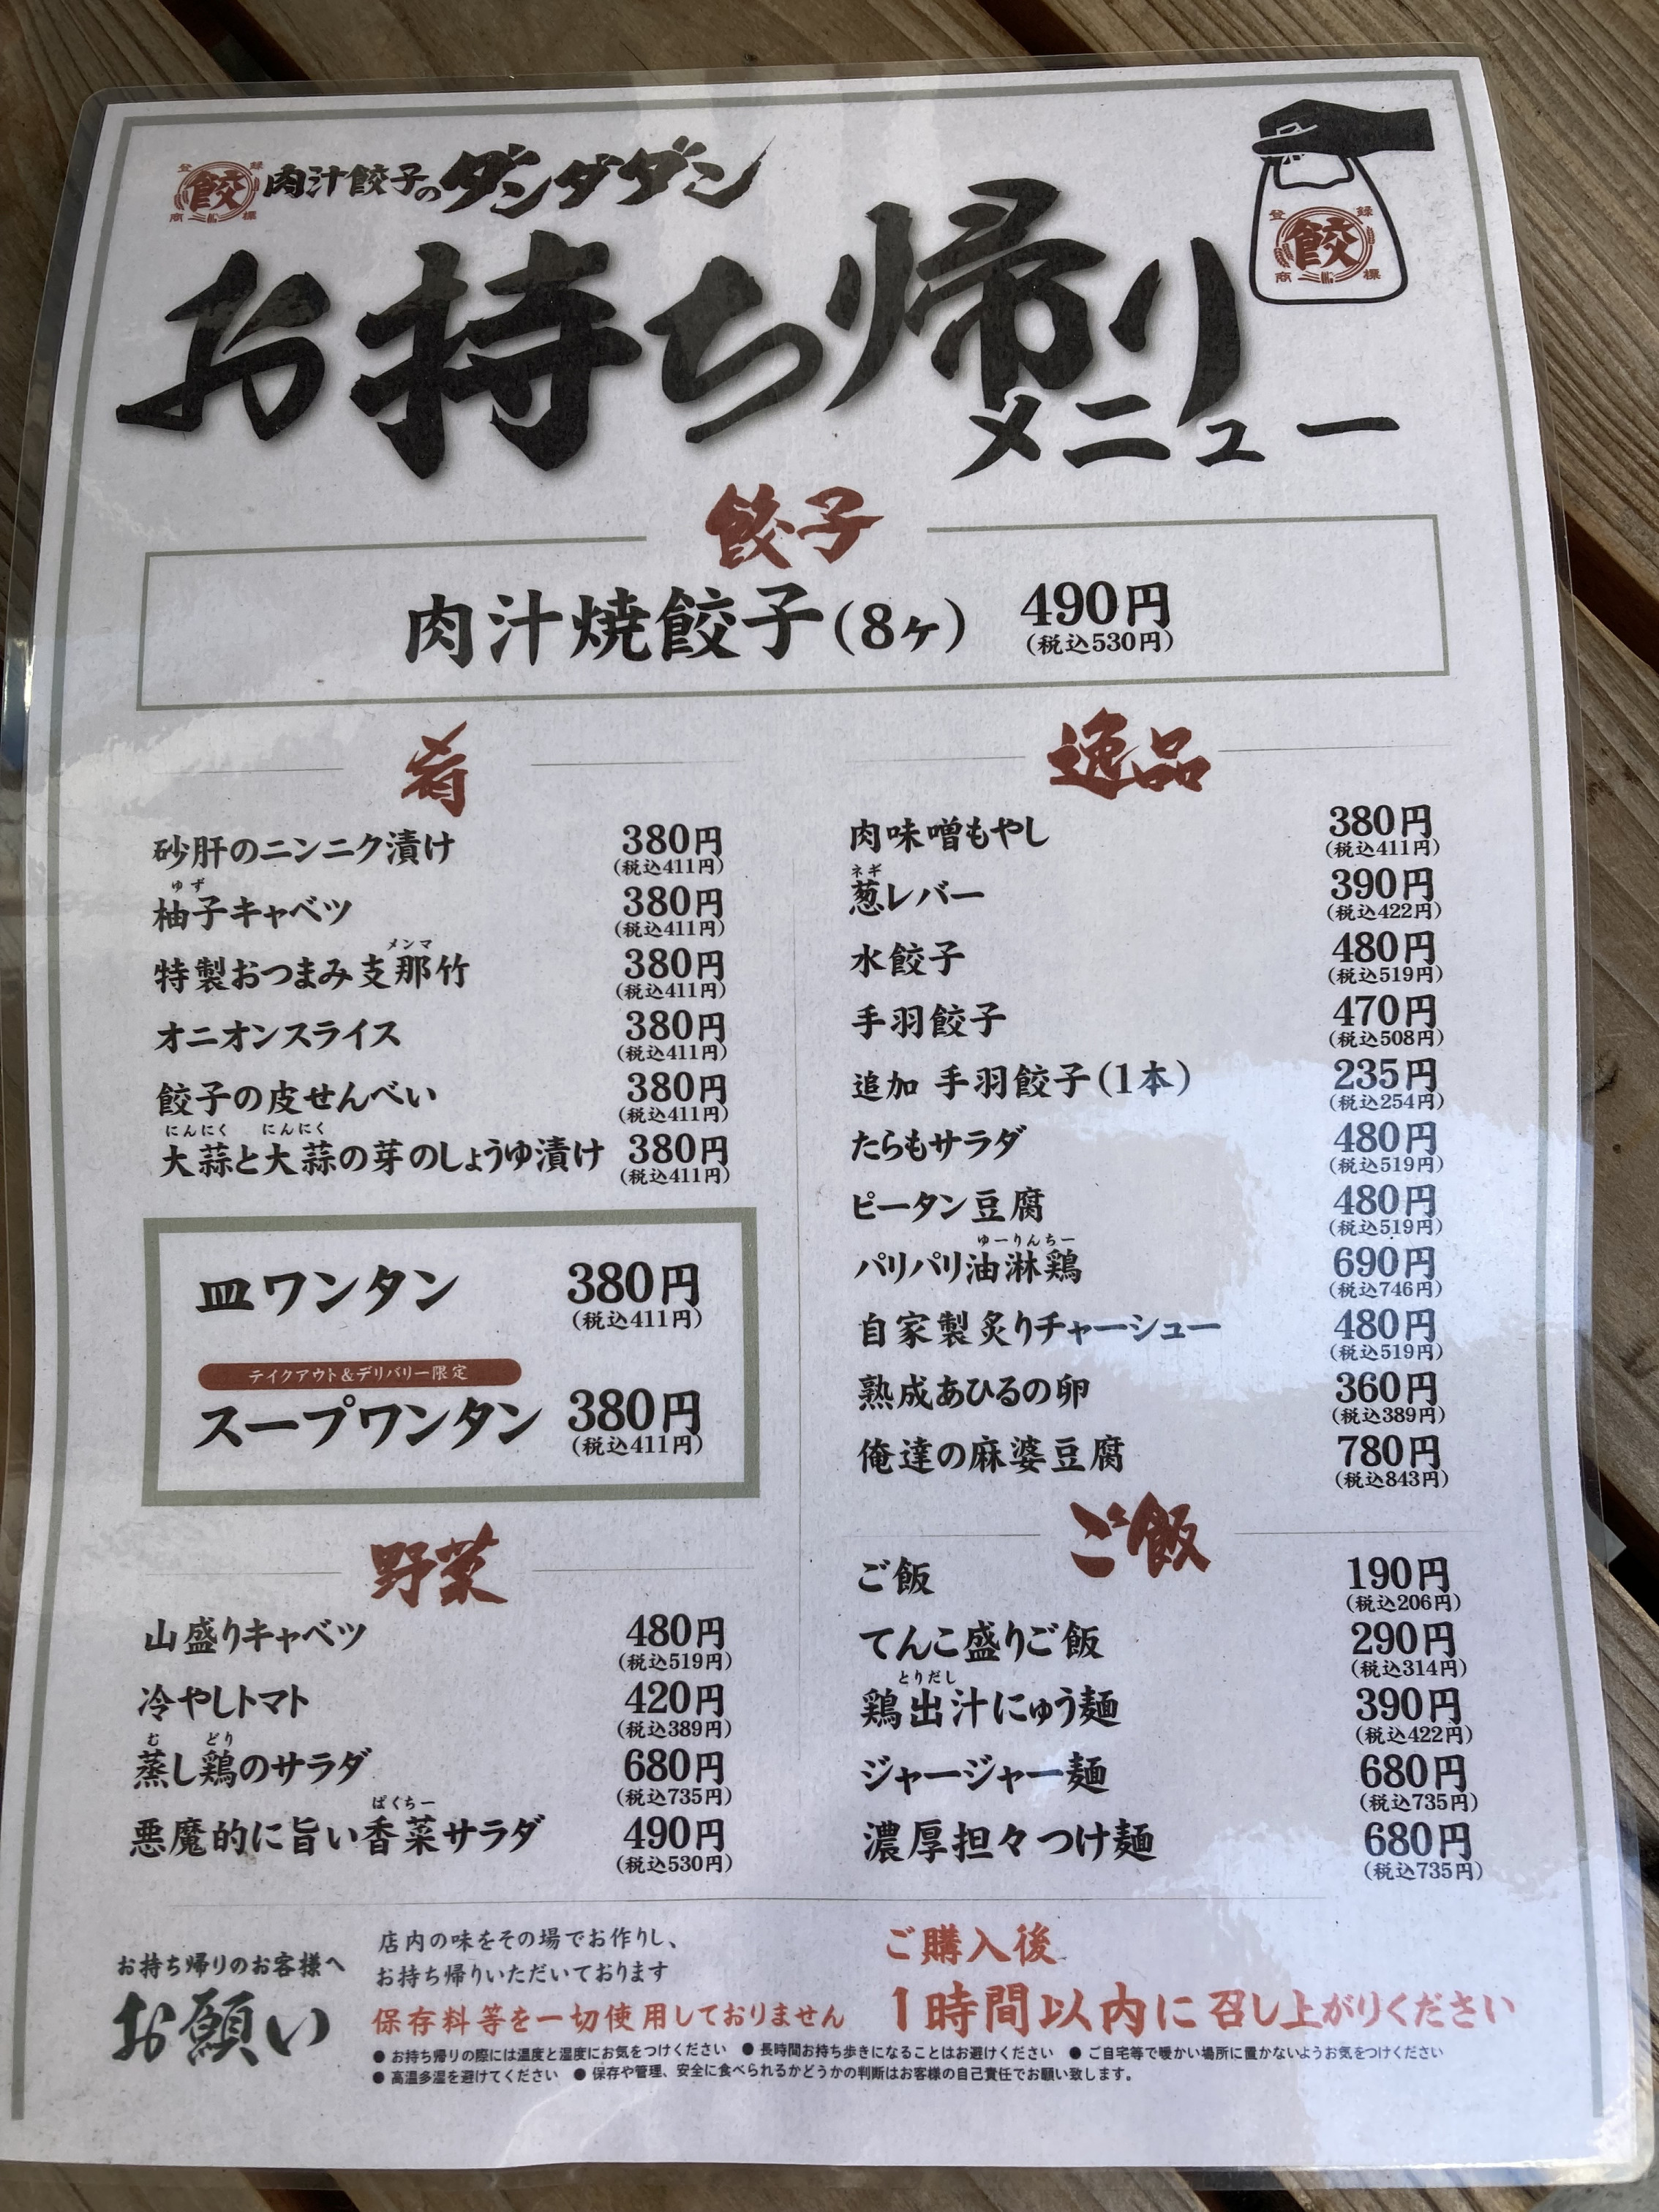 登録
餃
商標
肉汁餃子のダンダダン
登録
餃
商標
お持ち帰り
メニュー
餃子
肉汁焼餃子(8ヶ) 490円
(税込530円)
肴
砂肝のニンニク漬け 380円
(税込411円)
ゆず
柚子キャベツ 380円
(税込411円)
メンマ
特製おつまみ支那竹 380円
(税込411円)
オニオンスライス 380円
(税込411円)
餃子の皮せんべい 380円
(税込411円)
にんにく にんにく
大蒜と大蒜の芽のしょうゆ漬け 380円
(税込411円)
皿ワンタン 380円
(税込411円)
テイクアウト&デリバリー限定
スープワンタン 380円
(税込411円)
野菜
山盛りキャベツ 480円
(税込519円)
冷やしトマト 420円
(税込389円)
む どり
蒸し鶏のサラダ 680円
(税込735円)
ぱくちー
悪魔的に旨い香菜サラダ 490円
(税込530円)
逸品
肉味噌もやし 380円
(税込411円)
ネギ
葱レバー 390円
(税込422円)
水餃子 480円
(税込519円)
手羽餃子 470円
(税込508円)
追加 手羽餃子(1本) 235円
(税込254円)
たらもサラダ 480円
(税込519円)
ピータン豆腐 480円
(税込519円)
ゆーりんちー
パリパリ油淋鶏 690円
(税込746円)
自家製炙りチャーシュー 480円
(税込519円)
熟成あひるの卵 360円
(税込389円)
俺達の麻婆豆腐 780円
(税込843円)
ご飯
ご飯 190円
(税込206円)
てんこ盛りご飯 290円
(税込314円)
とりだし
鶏出汁にゅう麺 390円
(税込422円)
ジャージャー麺 680円
(税込735円)
濃厚担々つけ麺 680円
(税込735円)
お持ち帰りのお客様へ
お願い
店内の味をその場でお作りし、
お持ち帰りいただいております
保存料等を一切使用しておりません
ご購入後
1時間以内に召し上がりください
●お持ち帰りの際には温度と湿度にお気をつけください ●長時間お持ち歩きになることはお避けください ●ご自宅等で暖かい場所に置かないようお気をつけください
●高温多湿を避けてください ●保存や管理、安全に食べられるかどうかの判断はお客様の自己責任でお願い致します。